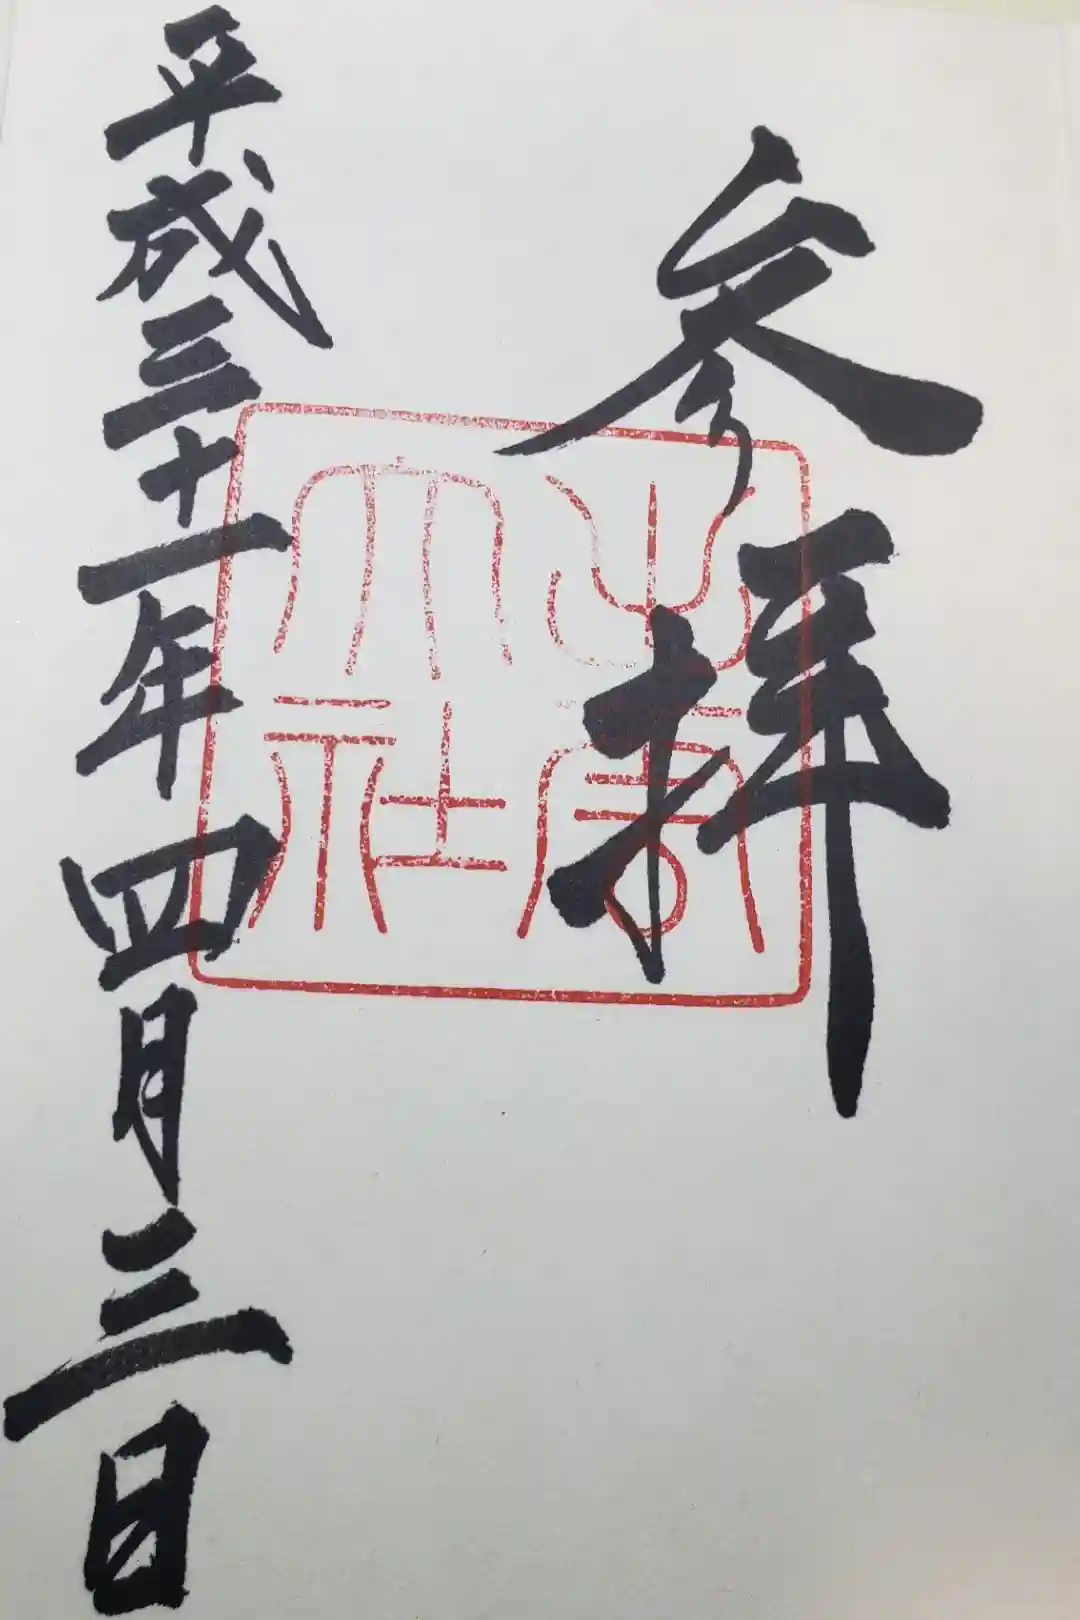 参拝
出雲
大社
平成三十一年四月三日